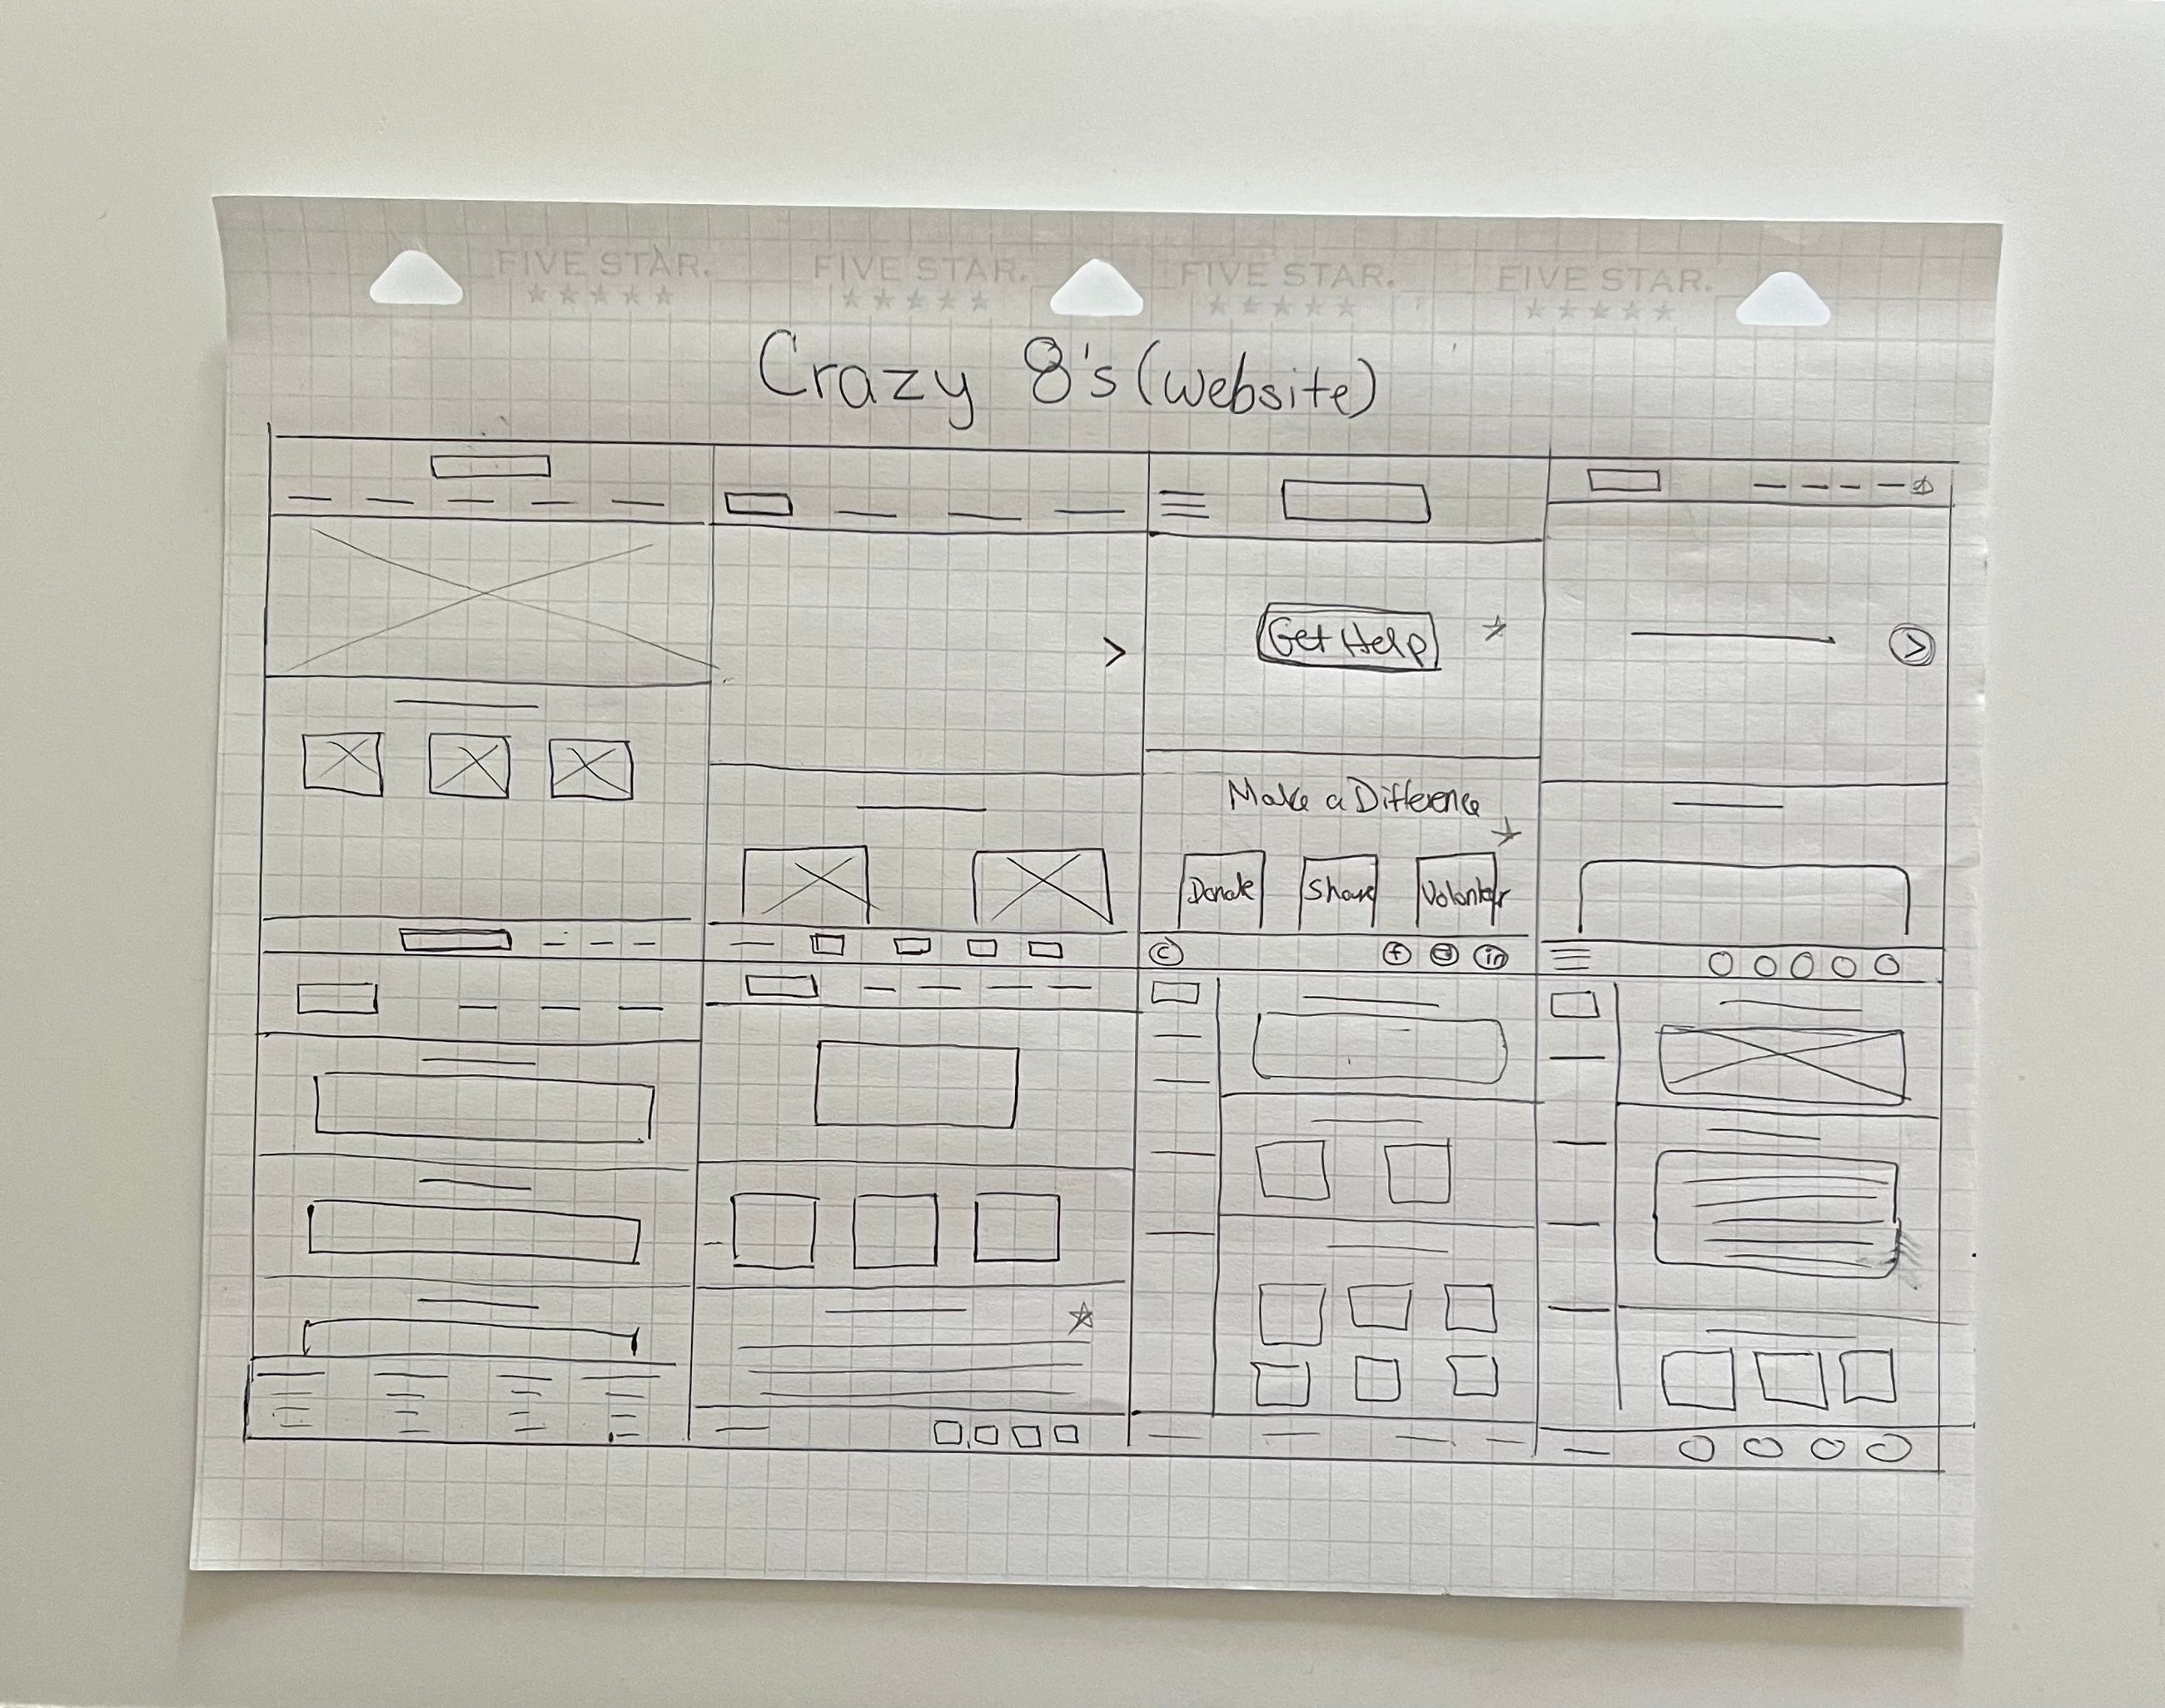 FIVE STAR. FIVE STAR. FIVE STAR. FIVE STAR.
Crazy 8's (website)
Get Help
Make a Difference
Donate Share Volonter
C f in